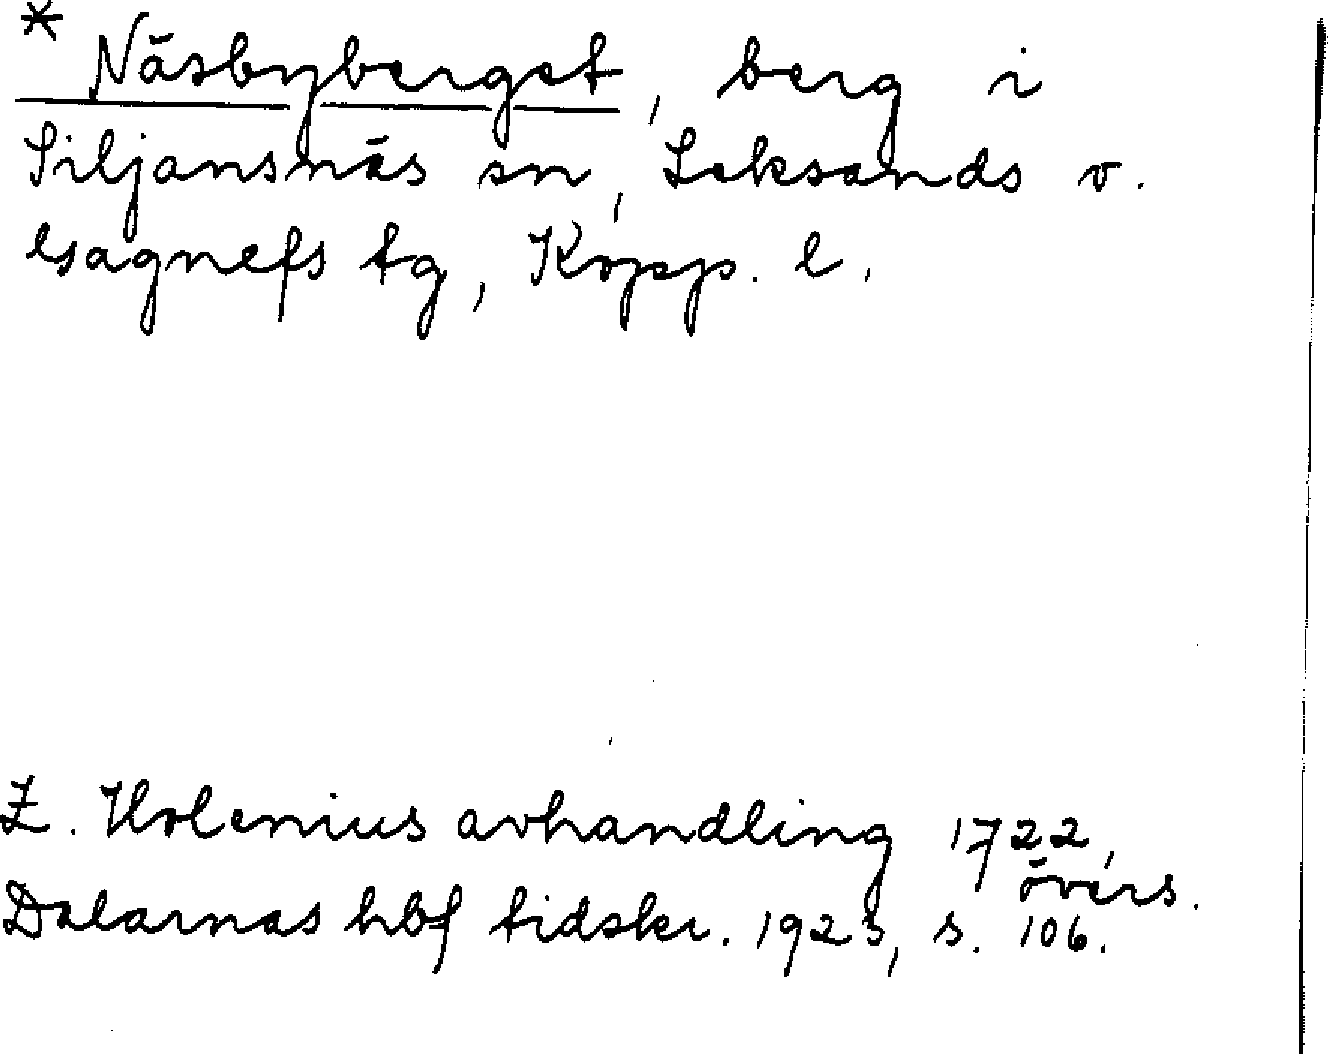 * Näsbyberget, berg i
Siljansnäs sn, Leksands o.
Gagnefs tg, Kopp. l.
Z. Holenius avhandling 1722,
övers.
Dalarnas hbf tidskr. 1923, s. 106.